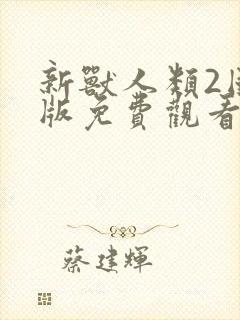 新獸人類2
版免費觀看
蔡建輝